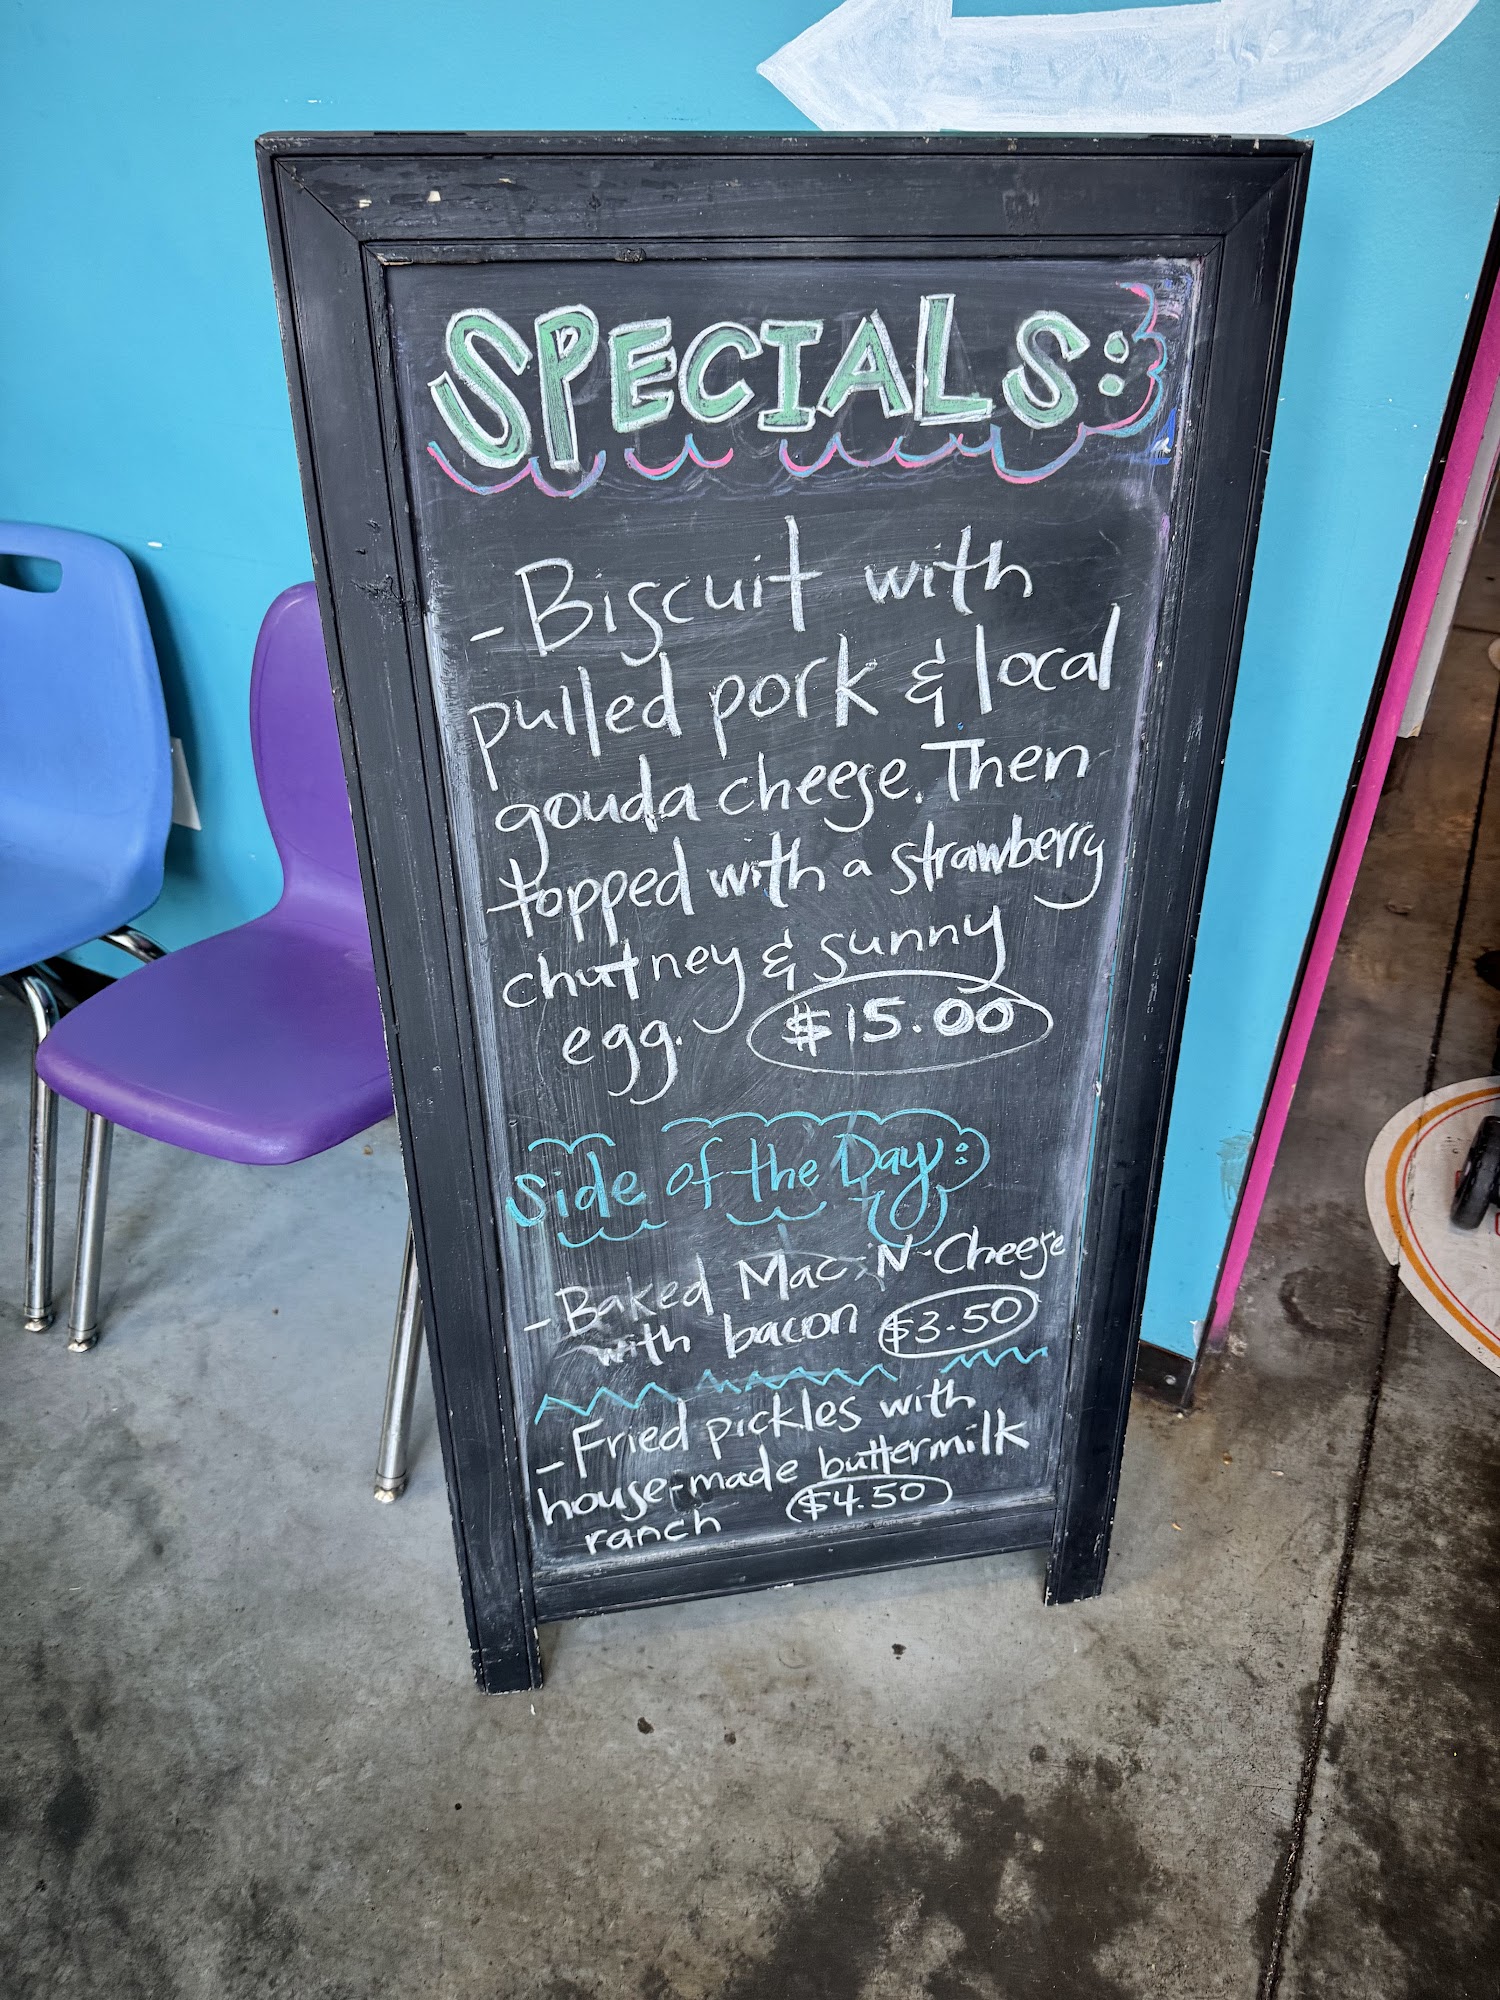 SPECIALS:
- Biscuit with
pulled pork & local
gouda cheese. Then
topped with a strawberry
chutney & sunny
egg. $15.00
Side of the Day:
- Baked Mac N Cheese
with bacon $3.50
- Fried pickles with
house-made buttermilk
ranch $4.50